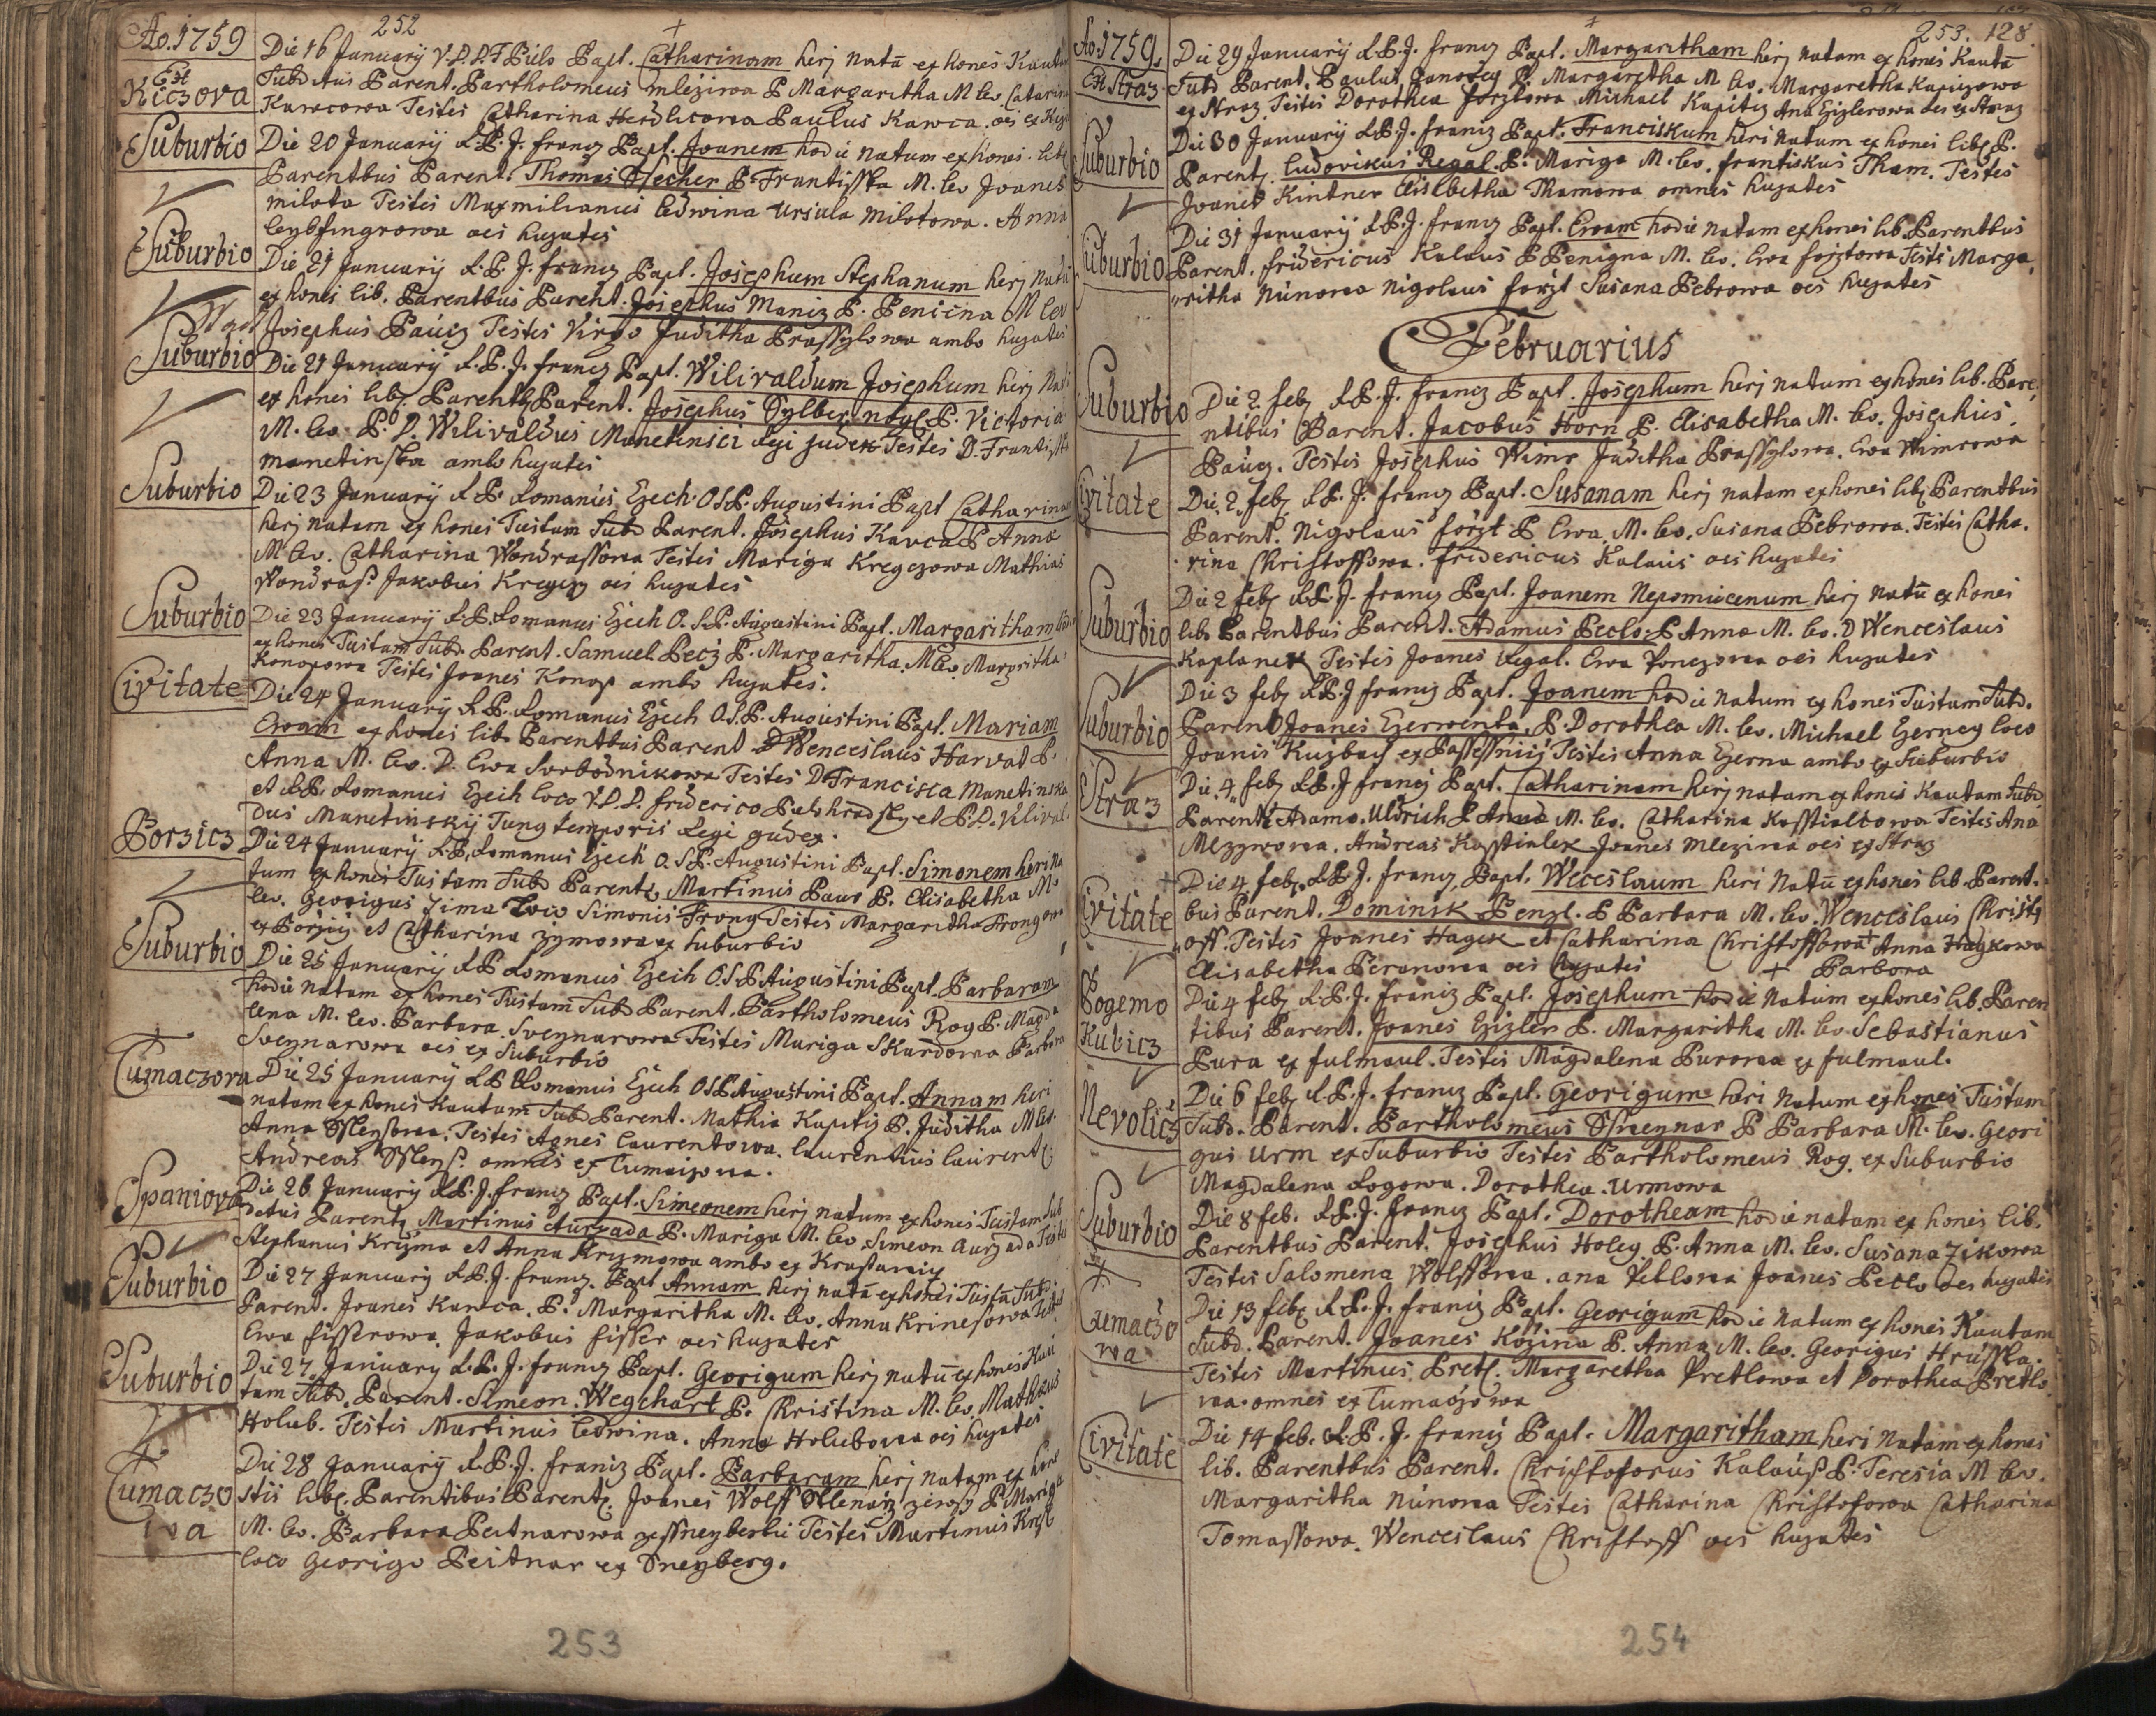 252
Ao. 1759
Die 16 January V.D.D.F Búlo Bapt. Catharinam herj natā ex hones Kaut
Ex Kiczova
Subd tus Parent. Bartholomeus mlezÿwa P Margaritha M lev Catarin
Kawcowa Testes Catharina Herdlicowa Paulus Kawca. oes ex
Suburbio
Die 20 Januarÿ R.P. J. francz Bapt. Joanem hodie natum ex hones. lib
Parentbus Parent. Thomas P. Frantisska M. lev Joanes
milota Testes Maxmilianus ledwina Ursula Milotowa. Anna
leybfingrowa oes hujates
Suburbio
Die 21 Januarÿ R.P. J. francz Bapt. Josephum Stephanum herj natū
ex hones lib. Parentbus Parent. Josephus Maniz P. Penicna M lev
Josephus Paúcz Testes Virgo Juditha Prassylowa ambo hujates
Suburbio
Die 21 Januarÿ R.P. J. francz Bapt. Wilivaldum Josephum herj
ex hones lib Parentb Parent. Josephus P. Victoria
M. lev P. D. Wilivaldus Manetinsci Regi judex Testes D. Frantisska
manetinska ambo hujates
Suburbio
Die 23 Januarÿ R.P. Romanus Czech. O.S.P. Augustini Bapt Catharinam
herj natam ex hones Tustam Subd Parent. Josephus Kavca P Anna
M lev. Catharina Wondrassowa Testes Mariga Kregczowa Mathias
Wondrass. Jakobus Kregczy oes hujates
Suburbio
Die 23 Januarÿ R.P. Romanus Czech O.S.P. Augustini Bapt. Margaritham
ex hones Tustam Subd. Parent. Samuel Pecz P. Margaritha. M lev. Margritha
Konopowa Testes Joanes Konop ambo hujates.
Civitate
Die 24 Januarÿ R.P. Romanus Czech O.S.P. Augustini Bapt. Mariam
Ewam ex hones lib. Parentbus Parent D Wenceslaus Harvat P.
Anna M. lev. D. Ewa Svobodnikowa Testes D Francisca Manetinska
et R.P. Romanus Czech loco V.D.D. friderico et P.D. Vilival
dus Manetinskÿ Tung temporis Regi gudex.
Borzicz
Die 24 Januarÿ R.P. Romanus Czech O.S.P. Augustini Bapt. Simonem heri na
tum ex hones Tustam Subd Parentz. Martinus Paur P. Elisabetha M.
lev. Georigus Zima Loco Simonis Frong Testes Margaritha Frongowa
ex Porzicz et Catharina Zymowa ex Suburbio
Suburbio
Die 25 Januarÿ R P Romanus Czech O.S.P. Augustini Bapt. Barbaram
hodie natam ex hones Tustam Subd Parent. Partholomeus Rog P. Magda
lena M. lev. Barbara. Sveynarowa Testes Mariga Skardowa Barbora
Sveynarowa oes ex Suburbio
Tumaczova
Die 25 Januarÿ R P Romanus Czech O.S.P. Augustini Bapt. Annam heri
natam ex hones Kautam Subd Parent. Mathia Kapitz P. Juditha M lev.
Anna Testes Agnes laurentowa. laurentius laurent
Andreas omnes ex Tumaczowa.
Spaniova
Die 26 Januarÿ R.P. J. francz Bapt. Simeonem herj natum ex hones Tustam Sub
detus Parent Martinus Aurzada P. Mariga M. lev. Simeon Aurzada Testes
Stephanus Krizma et Anna Krizmowa ambo ex
Suburbio
Die 27 Januarÿ R.P. J. francz. Bapt Annam herj natā ex hones Tustā Subd.
Parent. Joanes Kawca. P. Margaritha M. lev. Anna Krinesowa Testes
Ewa fisserowa. Jakobus fisser oes hujates
Suburbio
Die 27 Januarÿ R.P. J. francz Bapt. Georigum herj natū ex hones Kau
tam Subd. Parent. Simeon Wegchart P. Christina M. lev. Mathaus
Holub. Testes Martinus ledwina. Anna Holubowa oes hujates
Tumaczowa
Die 28 Januarÿ R.P. J. francz Bapt. Barbaram herj natam ex hone
stis libe. Parentibus Parent. Joanes Wolff P Mariga
M. lev. Barbara Peitnarowa Testes Martinus
loco Georigo Peitnar ex Sneyberg.
253
253. 128.
Ao. 1759.
Die 29 Januarÿ R.P. J. francz Bapt. Margaritham herj natam ex hones Kauta
Ex Straz
Subd Parent. Paulus Janoucz P. Margaretha M. lev. Margaretha Kapiczowa
ex Straz Testes Dorothea Forstowa Michael Kapitz Ana Czizlerowa oes ex Straz
Suburbio
Die 30 Januarÿ R.P. J. francz Bapt. Franciskum heri natum ex hones libe P.
Parent. Ludovikus Regal. P. Mariga M. lev. frantiskus Tham. Testes
Joanes Kintner Elisebetha Thamowa omnes hujates
Suburbio
Die 31 Januarÿ R.P. J. francz Bapt. Ewam hodie natam ex hones lib. Parentbus
Parent. fridericus Kalaus P Penigna M. lev. Ewa forztowa Testes Marga,
„ritha Núnowa Nigolaus forzt Susana Pebrowa oes hujates
Februarius
Suburbio
Die 2 feb. R.P. J. francz Bapt. Josephum herj natum ex hones lib. Pare,
ntibus Parent. Jacobus Horn P. Elisabetha M. lev. Josephus
Paúcz. Testes Josephus Wimr Juditha Prassylowa. Ewa Wimrowa
Civitate
Die 2 feb R.P. J. francz Bapt. Susanam herj natam ex hones lib Parentbus
Parent. Nigolaus forzt P Ewa, M. lev. Susana Pebrowa. Testes Catha.
rina Christoffowa. fridericus Kalaus oes hujates
Suburbio
Die 2 feb R.P. J. francz Bapt. Joanem Nepomucenum herj natū ex hones
lib. Parentbus Parent. Adamus Peclo. P Anna M. lev. D Wenceslaus
Kaplanek Testes Joanes Regal. Ewa Ponczowa oes hujates
Suburbio
Die 3 feb R.P. J francz Bapt. Joanem hodie natum ex hones Tustum Subd.
Parent Joanes Czerwenka. P. Dorothea M. lev. Michael Czerney loco
Joanis Kuzbach ex Testes Anna Czerna ambo ex Suburbio
Straz
Die 4 feb R.P. J francz Bapt. Catharinam herj natam ex hones Kautam Subd
Parent Adamo. Uldrich P Anna M. lev. Catharina Kosstialkowa Testes Ana
Mlezywowa. Andreas Kosstialek Joanes Mleziwa oes ex Straz
Civitate
Die 4 feb. R.P. J. francz Bapt. Weceslaum heri natū ex hones lib. Parent.
bus Parent. Dominik Penzl. P Barbara M. lev. Wenceslaus Christ,
„off. Testes Joanes Hagek et Catharina Christoffowa + Anna Hagkowa
Elisabetha Peranowa oes hujates + Barbora
Bogemo Kubicz
Die 4 feb R.P. J. francz Bapt. Josephum hodie natum ex hones lib. Paren
tibus Parent. Joanes Czizler P. Margaritha M. lev. Sebastianus
Pura ex fulmaul. Testes Magdalena Purowa ex fulmaul.
Nevolicz
Die 6 feb R.P. J. francz Bapt. Georigum heri natum ex hones Tustam
Subd. Parent. Partholomeus P Barbara M. lev. Geori
gus Urm ex Suburbio Testes Partholomeus Rog. ex Suburbio
Magdalena Rogowa. Dorothea. Urmowa
Suburbio
Die 8 feb. R.P. J. francz Bapt. Dorotheam hodie natam ex hones lib.
Parentbus Parent. Josephus Holey P. Anna M. lev. Susana Zikowa
Testes Salomena Wolffowa. ana Petlowa Joanes Peclo oes hujates
Tumaczowa
Die 13 feb R.P. J. francz Bapt. Georigum hodie natum ex hones Kautam
Subd. Parent. Joanes Kozina P. Anna M. lev. Georigus Hrusska.
Testes Martinus. Pretl. Margaretha Pretlowa et Dorothea Pretlo
wa. omnes ex Tumaczowa
Civitate
Die 14 feb. R.P. J. francz Bapt. Margaritham heri natam ex hones
lib. Parentbus Parent. Christoforus Kalaus P. Teresia M lev.
Margaritha Núnowa Testes Catharina Christofowa Catharina
Tomassowa. Wenceslaus Christoff oes hujates
254